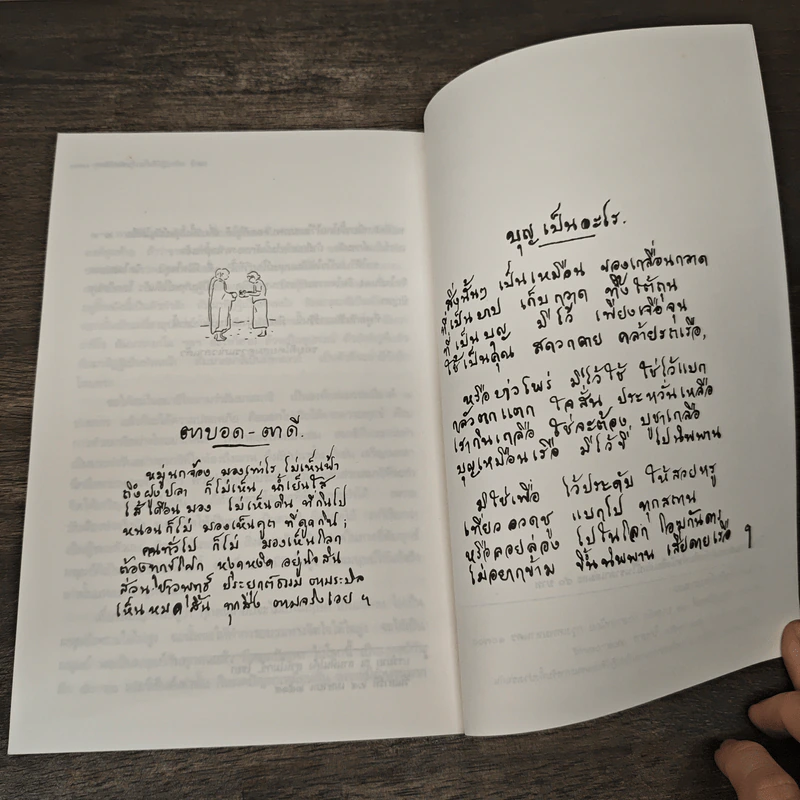 ตาบอด - ตาดี.
หมู่นกจ้อง มองเท่าไร ไม่เห็นฟ้า
ถึงฝูงปลา ก็ไม่เห็น น้ำเย็นใส
ไส้เดือนมอง ไม่เห็นดิน ที่กินไป
หนอนก็ไม่ มองเห็นคูต ที่ดูดกิน ;
คนทั่วไป ก็ไม่ มองเห็นโลก
ต้องทุกข์โศก หงุดหงิด อยู่นิจสิน
ส่วนชาวพุทธ ประยุกต์ธรรม ตามระบิล
เห็นหมดสิ้น ทุกสิ่ง ตามจริงเอย ฯ
บุญ เป็นอะไร.
สิ่งนั้นๆ เป็นเหมือน ของเกลื่อนกลาด
ที่เป็นบาป เก็บกวาด ทิ้งใต้ถุน
ที่เป็นบุญ มีไว้ เพียงเจือจุน
ใช้เป็นคุณ สดวกดาย คล้ายรถเรือ,
หรือบ่าวไพร่ มีไว้ใช้ ใช่ไว้แบก
กลัวตกแตก ใจสั่น ประหวั่นเหลือ
เรากินเกลือ ใช่จะต้อง บูชาเกลือ
บุญเหมือนเรือ มีไว้ขี่ ไปนิพพาน
มิใช่เพื่อ ไว้ประดับ ให้สวยหรู
เที่ยวอวดชู แบกไป ทุกสถาน
หรือลอยล่อง ไปในโลก โอฆกันดาร
ไม่อยากข้าม ขึ้นนิพพาน เสียดายเรือ ฯ